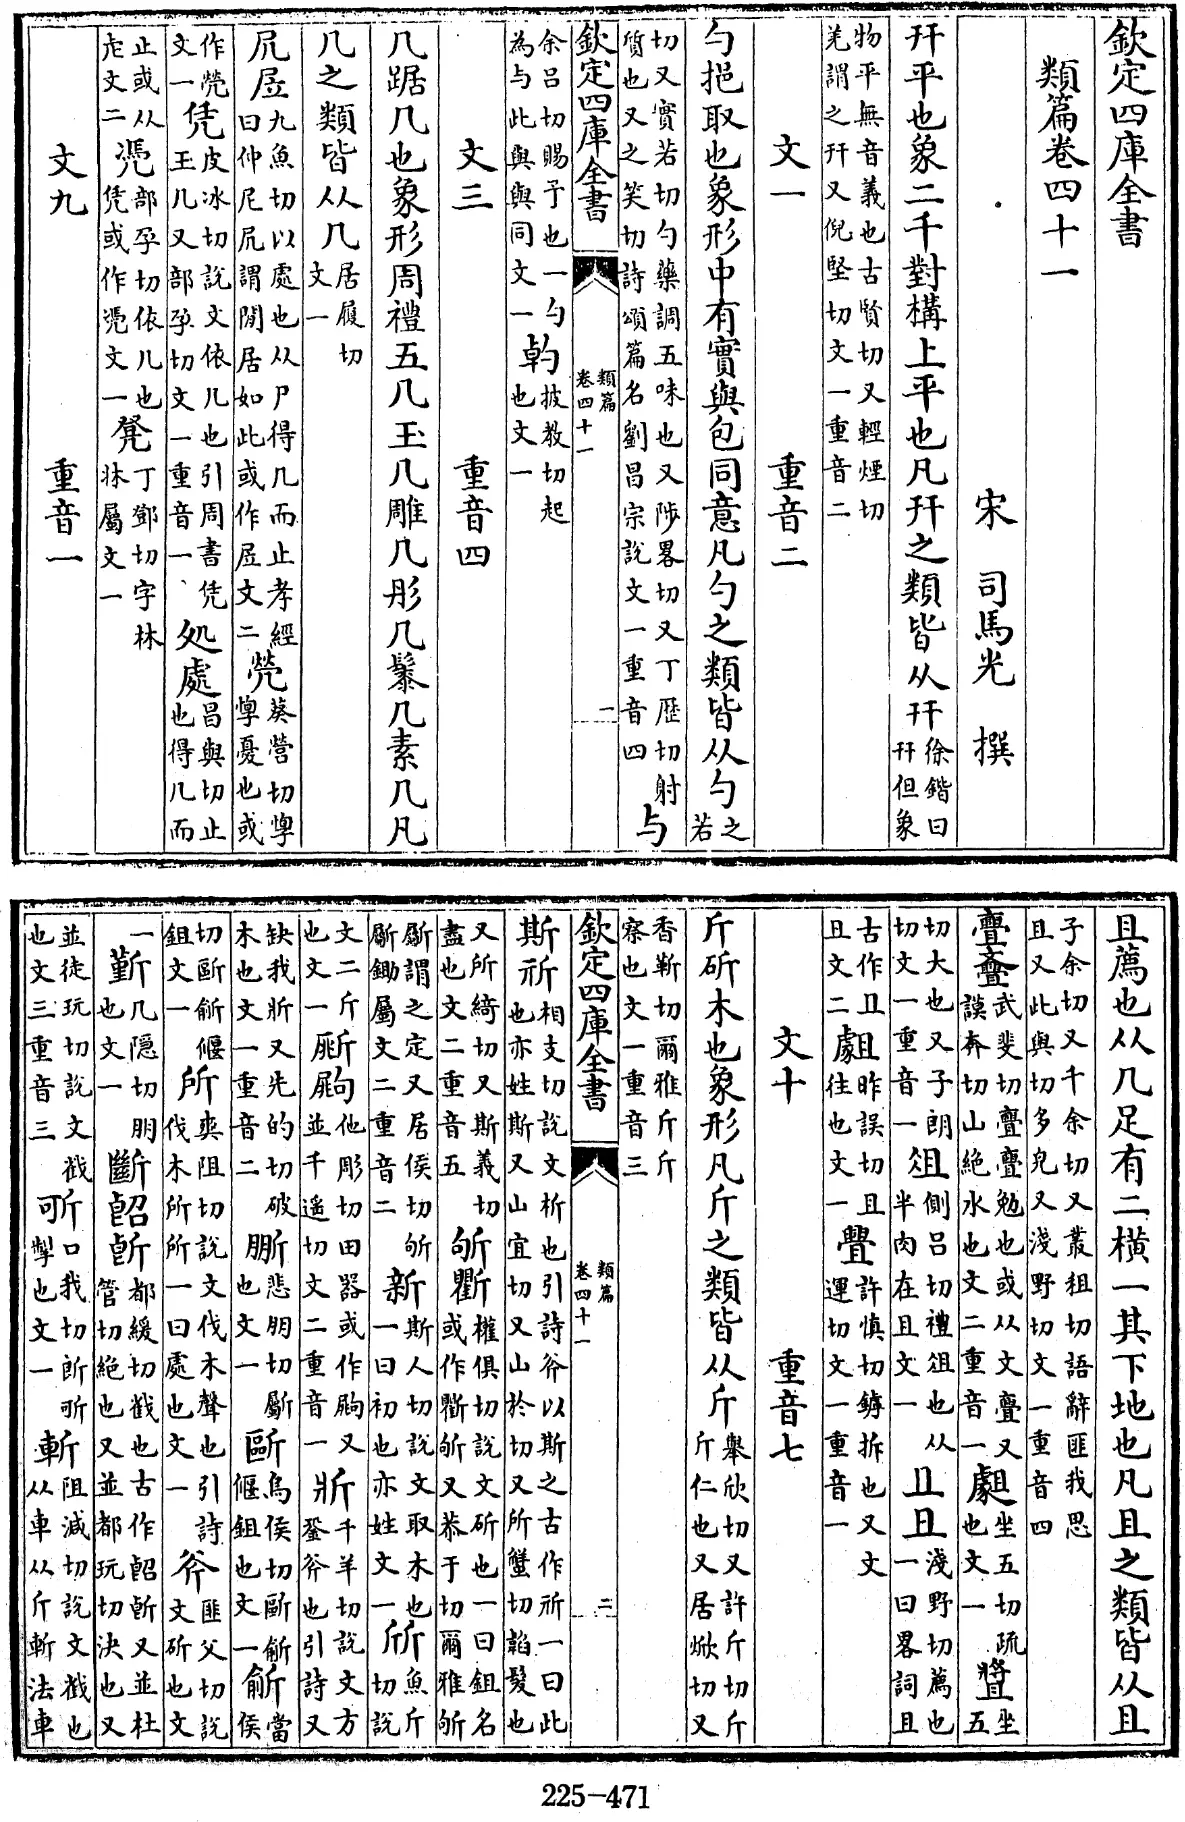 欽定四庫全書
類篇卷四十一
宋 司馬光 撰
幵平也象二干對構上平也凡幵之類皆从幵徐鍇曰幵但象
物平無音義也古賢切又輕煙切羌謂之幵又倪堅切文一重音二
文一 重音二
勺挹取也象形中有實與包同意凡勺之類皆从勺之若
切又實若切勺藥調五味也又陟畧切又丁歷切射質也又之笑切詩頌篇名劉昌宗說文一重音四与
欽定四庫全書 類篇卷四十一 一
余呂切賜予也一勺為与此與與同文一 披教切起也文一
文三 重音四
几踞几也象形周禮五几玉几雕几彤几鬃几素几凡
几之類皆从几居履切文一
凥㞐九魚切以處也从尸得几而止孝經曰仲尼凥凥謂閒居如此或作㞐文二 葵營切惸惸憂也或
作 文一凭皮冰切說文依几也引周書凭玉几又部孕切文一重音一処處昌與切止也得几而
止或从虍文二凴部孕切依几也凭或作凴文一凳丁鄧切字林牀屬文一
文九 重音一
且薦也从几足有二橫一其下地也凡且之類皆从且
子余切又千余切又叢租切語辭匪我思且又此與切多皃又淺野切文一重音四
亹斖武斐切亹亹勉也或从文亹又謨奔切山絶水也文二重音一 坐五切疏也文一 坐五
切大也又子朗切文一重音一俎側呂切禮俎也从半肉在且文一 淺野切薦也一曰畧詞且
古作 且文二 昨誤切且往也文一 許慎切罅拆也又文運切文一重音一
文十 重音七
斤斫木也象形凡斤之類皆从斤舉欣切又許斤切斤斤仁也又居焮切又
香靳切爾雅斤斤察也文一重音三
欽定四庫全書 類篇卷四十一 二
斯 相支切說文析也引詩斧以斯之古作 一曰此也亦姓斯又山宜切又山於切又所蟹切韜髮也
又所綺切又斯義切盡也文二重音五斪 權俱切說文斫也一曰鉏名或作 斪又恭于切爾雅斪
斸謂之定又居侯切斪斸鋤屬文二重音二新斯人切說文取木也一曰初也亦姓文一斦魚斤切說
文二斤也文一 他彫切田器或作 又並千遙切文二重音一斨千羊切說文方銎斧也引詩又
缺我斨又先的切破木也文一重音二 悲朋切斸也文一 烏侯切 偃鉏也文一 當侯
切 偃鉏文一所爽阻切說文伐木聲也引詩伐木所所一曰處也文一斧匪父切說文斫也文
一 几隐切 也文一斷 都緩切截也古作 又並杜管切絶也又並都玩切決也又
並徒玩切說文截也文三重音三 口我切 也文一斬阻減切說文截也从車从斤斬法車
225-471